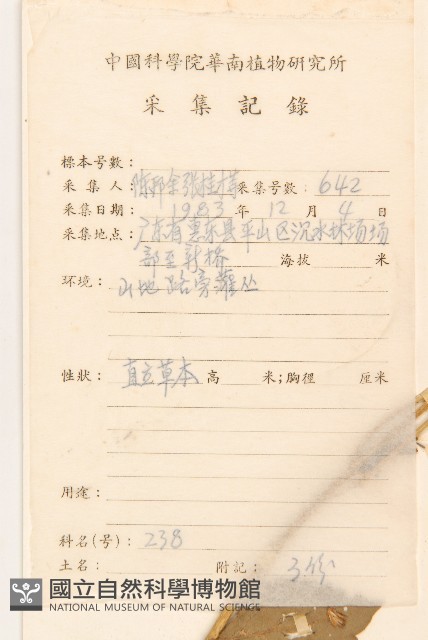 中國科學院華南植物研究所
采集記錄
標本号數：
采集人：陈邦余 张桂才 采集号數：642
采集日期：1983年12月4日
采集地点：广东省惠东县平山区沉水林场场
部至新桥 海拔 米
环境：山地路旁灌丛
性狀：直立草本 高 米；胸徑 厘米
用途：
科名(号)：238
土名： 附記：3份
國立自然科學博物館
NATIONAL MUSEUM OF NATURAL SCIENCE